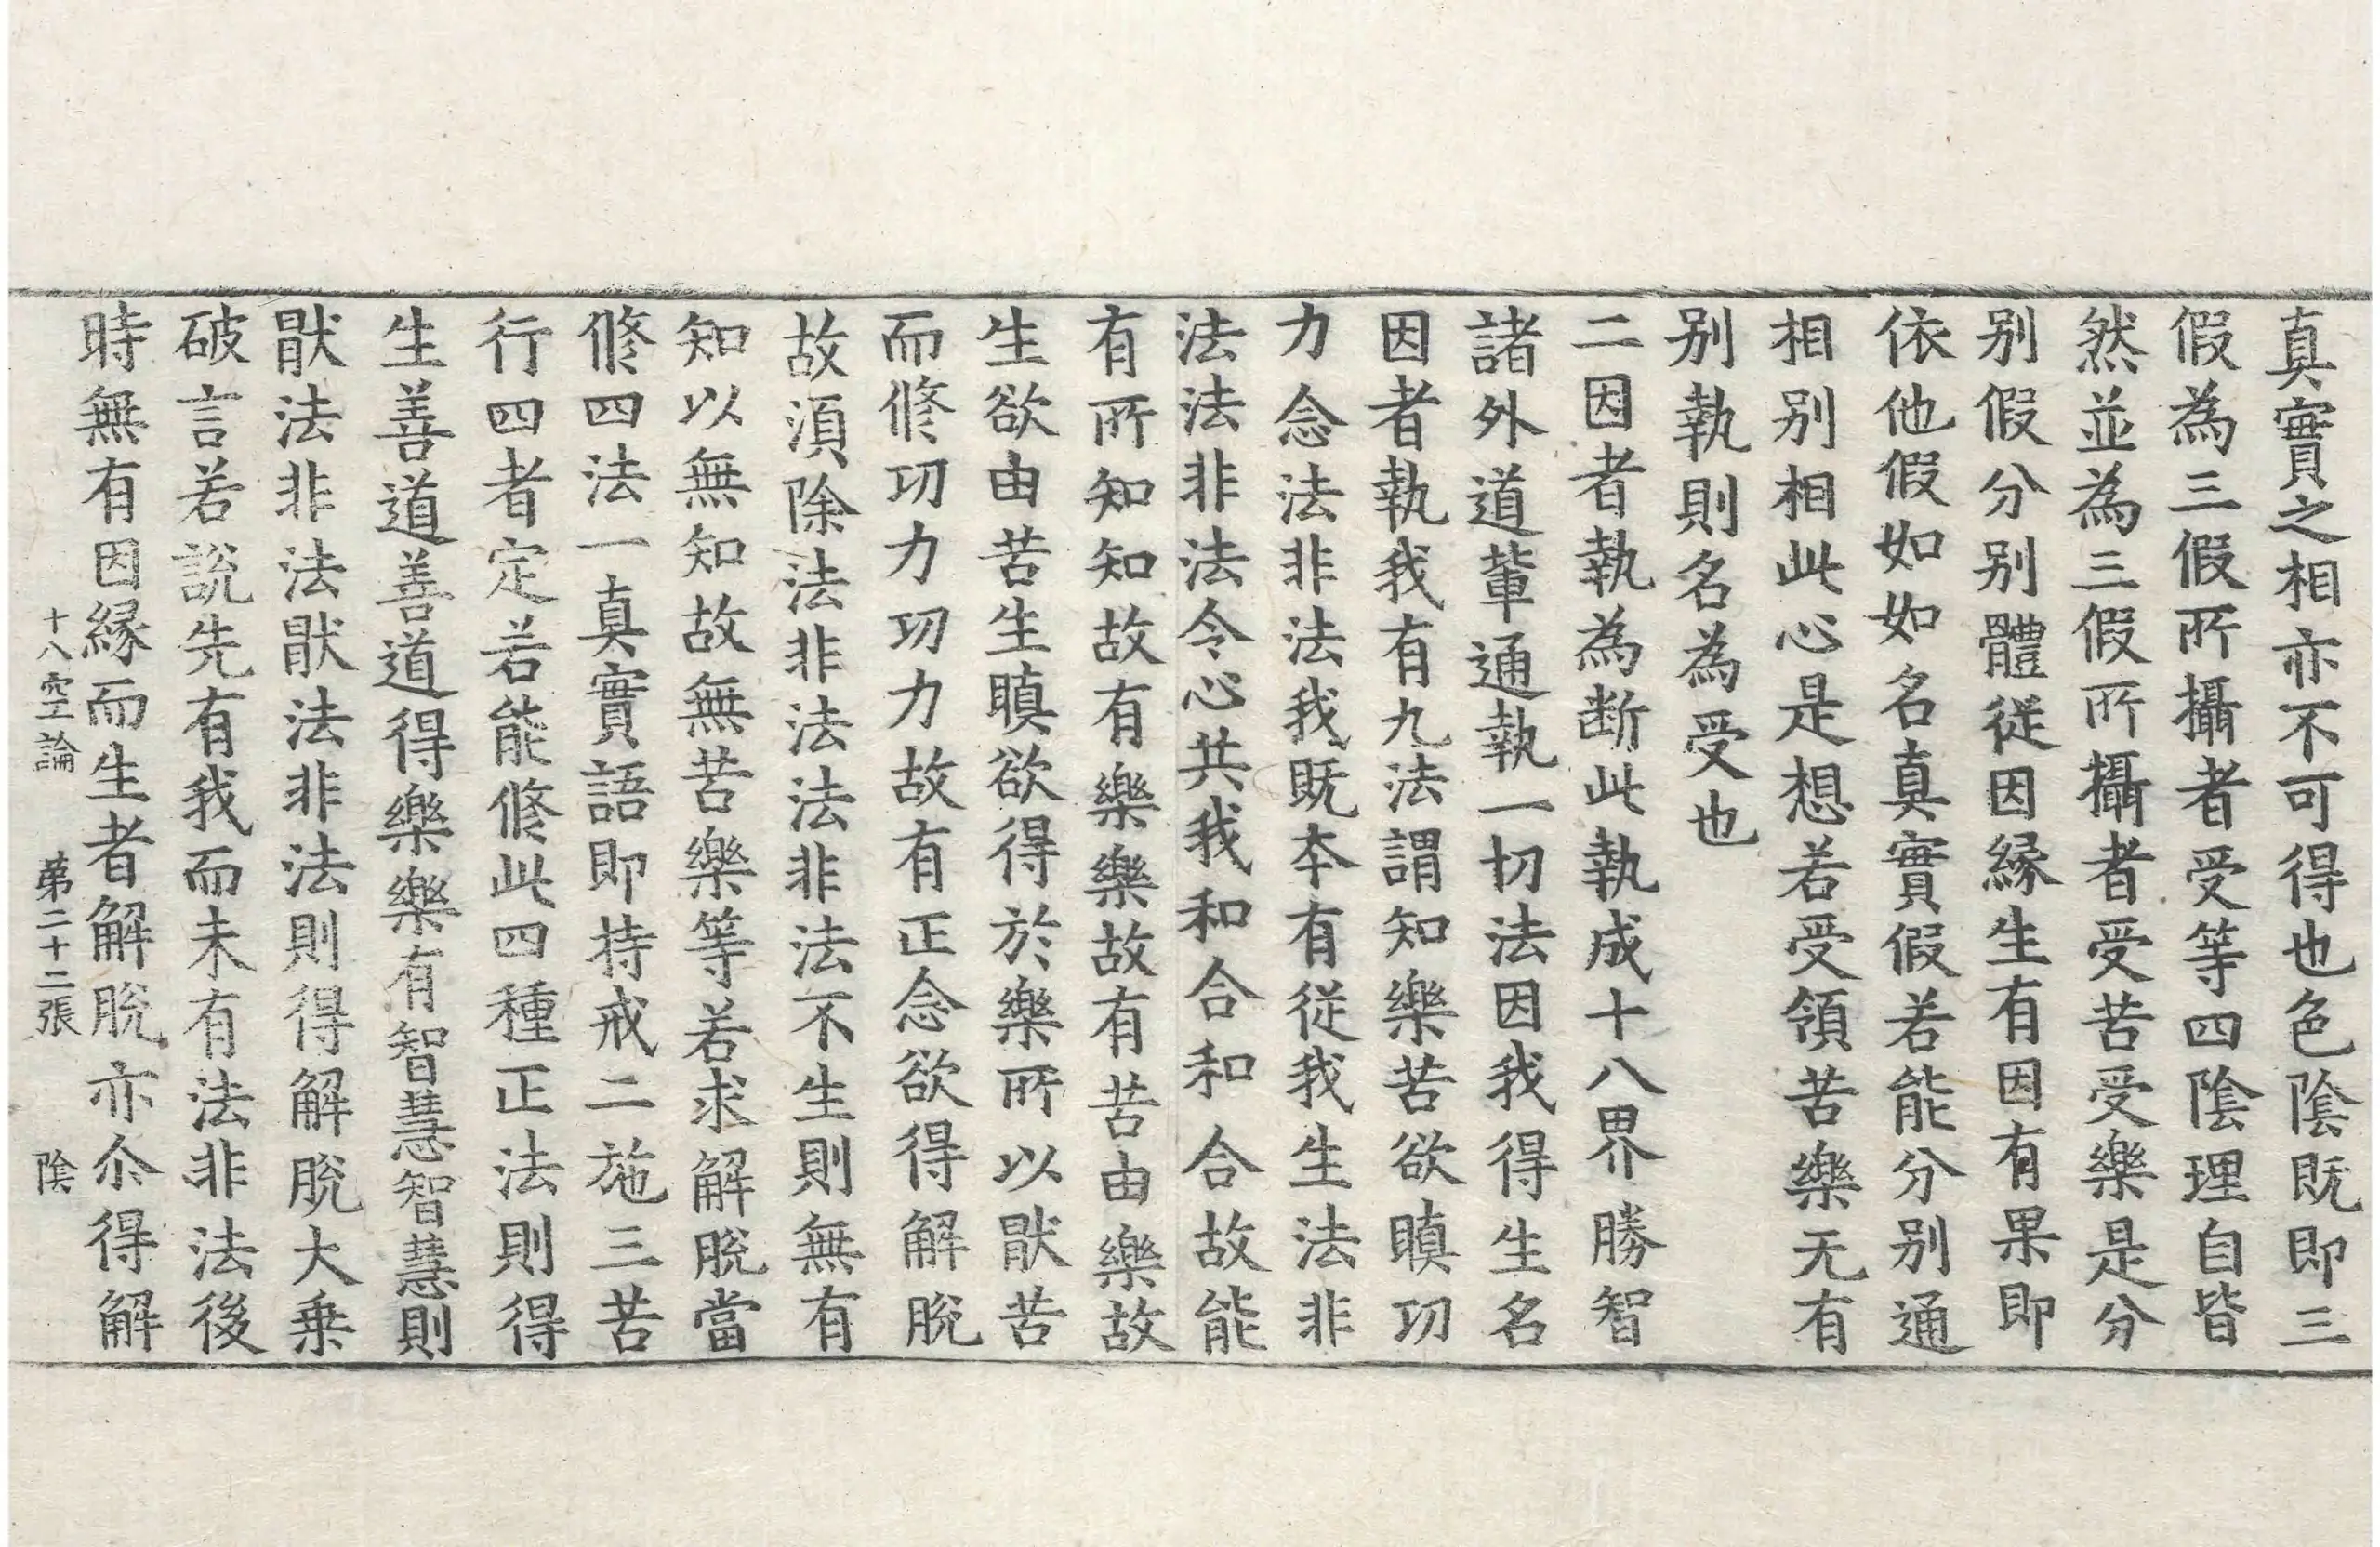 真實之相亦不可得也色陰既即三
假為三假所攝者受等四陰理自皆
然並為三假所攝者受苦受樂是分
别假分别體従因縁生有因有果即
依他假如如名真實假若能分别通
相别相此心是想若受領苦樂无有
别執則名為受也
二因者執為断此執成十八界勝智
諸外道輩通執一切法因我得生名
因者執我有九法謂知樂苦欲瞋功
力念法非法我既本有従我生法非
法法非法令心共我和合和合故能
有所知知故有樂樂故有苦由樂故
生欲由苦生瞋欲得於樂所以猒苦
而修功力功力故有正念欲得解脫
故須除法非法法非法不生則無有
知以無知故無苦樂等若求解脫當
修四法一真實語即持戒二施三苦
行四者定若能修此四種正法則得
生善道善道得樂樂有智慧智慧則
猒法非法猒法非法則得解脫大乗
破言若說先有我而未有法非法後
時無有因縁而生者解脫亦尒得解
十八空論　苐二十二張　陰